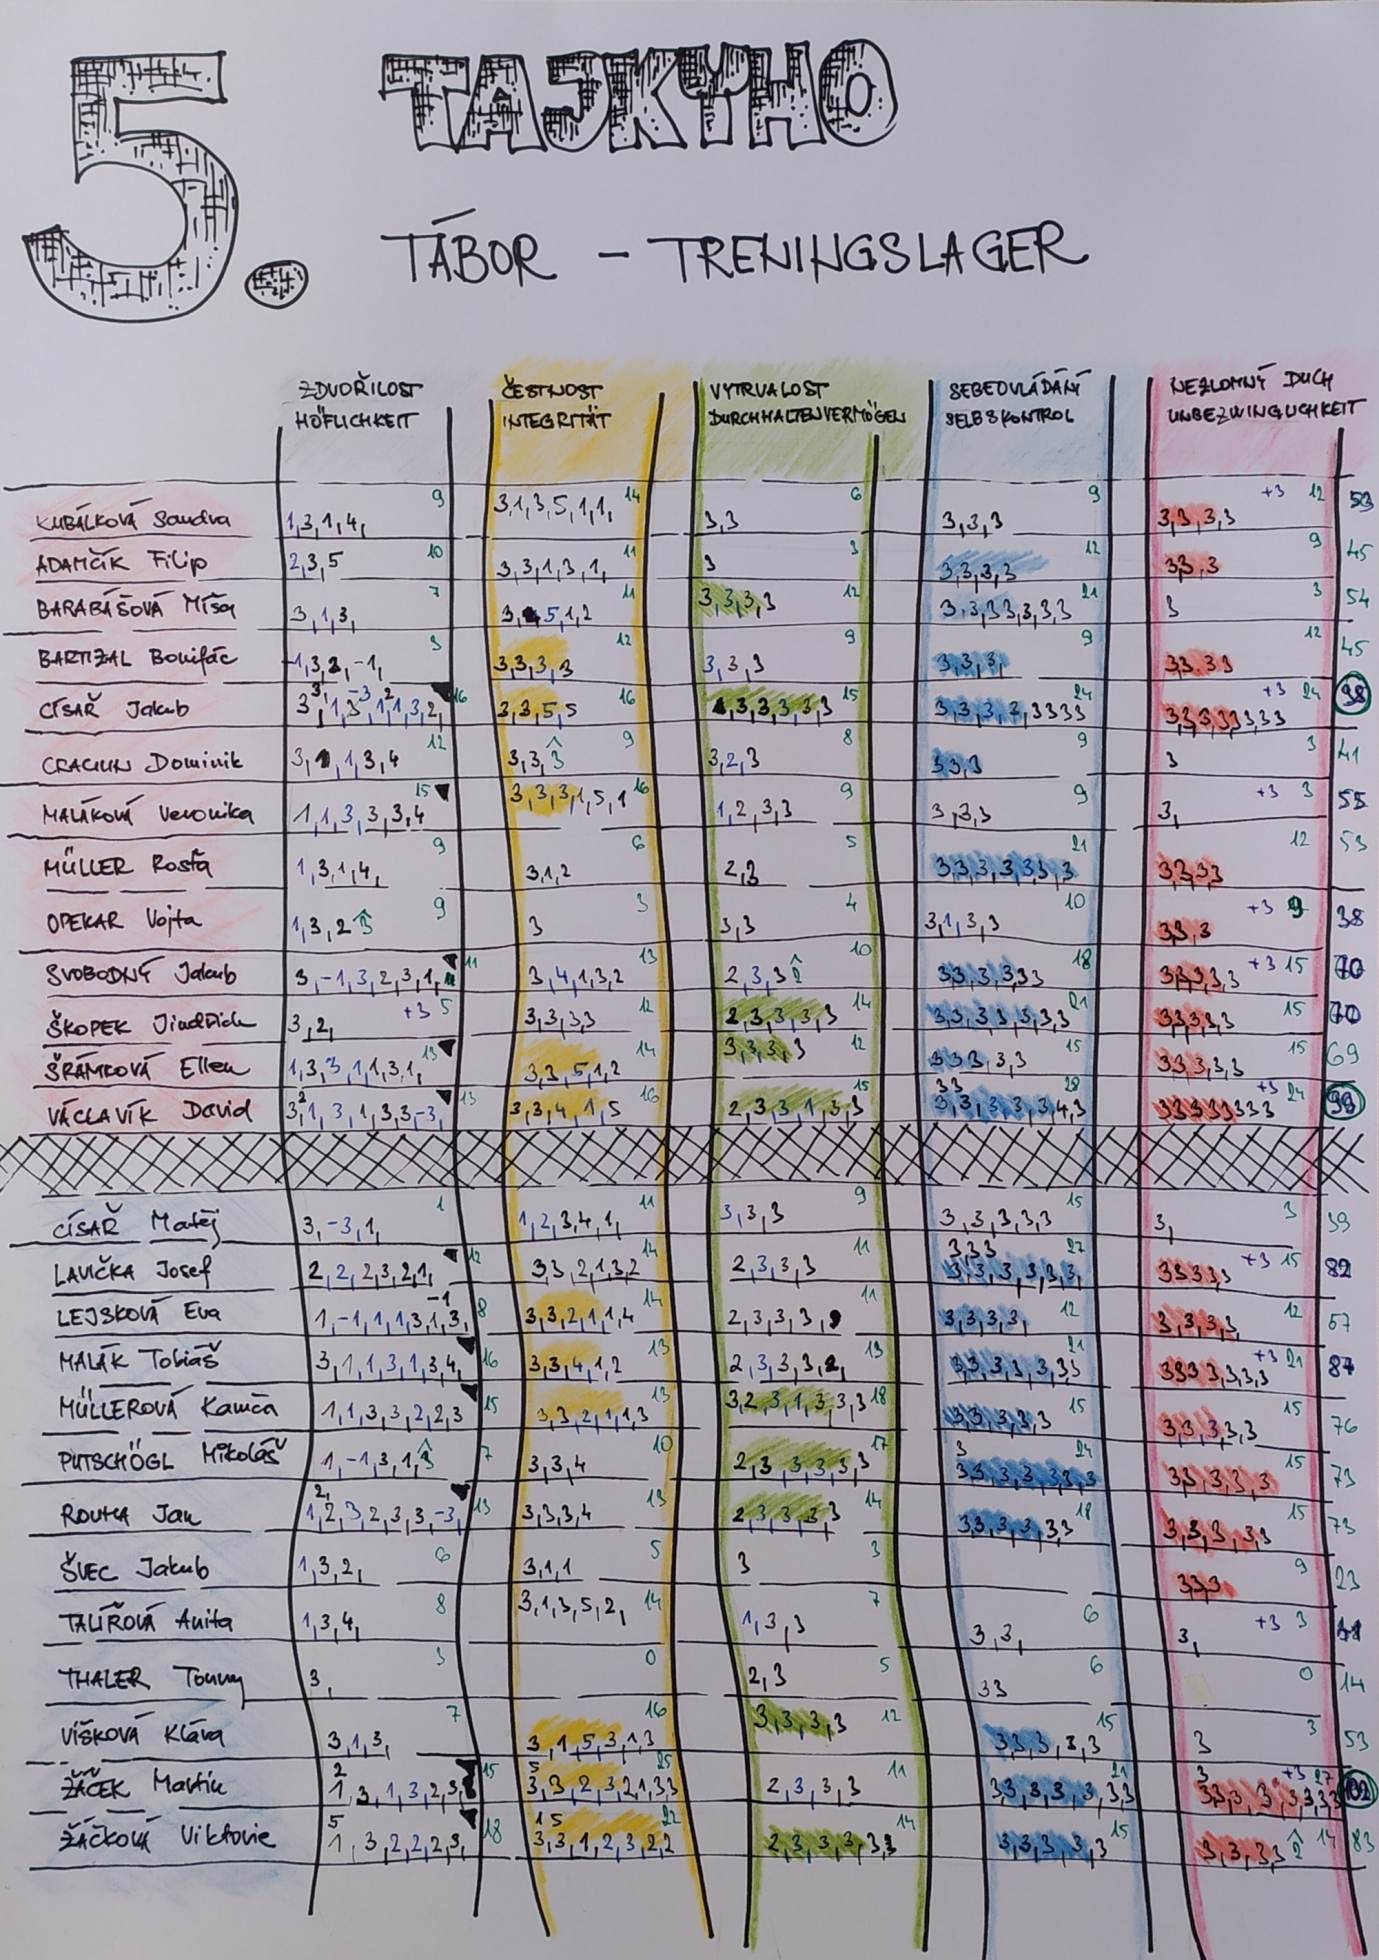 5. TAJKYHO
TÁBOR - TRENINGSLAGER
ZDVOŘILOST ČESTNOST VYTRVALOST SEBEOVLÁDÁNÍ NEZLOMNÝ DUCH
HÖFLICHKEIT INTEGRITÄT DURCHHALTENVERMÖGEN SELBSKONTROL UNBEZWINGLICHKEIT
KUBÁLKOVÁ Sandra 1,3,1,4, 9 3,1,3,5,1,1, 14 3,3 6 3,3,3 9 3,3,3,3 +3 12 53
ADAMČÍK Filip 2,3,5 10 3,3,1,3,1, 11 3 3 3,3,3,3 12 3,3,3 9 45
BARABÁŠOVÁ Míša 3,1,3, 7 3, 5,1,2 11 3,3,3,3 12 3,3,3,3,3,3,3 21 3 3 54
BARTIZAL Bonifác -1,3,2,-1, 3 3,3,3,3 12 3,3,3 9 3,3,3, 9 3,3,3,3 12 45
CÍSAŘ Jakub 16 3,3,5,5 16 3,3,3,3,3 15 3,3,3,3,3,3,3,3 24 3,3,3,3,3,3,3 +3 24
CRACIUN Dominik 3, 1,3,4 12 3,3,3 9 3,2,3 8 3,3,3 9 3 3 41
MALÁKOVÁ Veronika 1,1,3,3,3,4 15 3,3,3,1,5,1 16 1,2,3,3 9 3,3,3 9 3, +3 3 55
MÜLLER Rosťa 1,3,1,4, 9 3,1,2 6 2,3 5 3,3,3,3,3,3,3 21 3,3,3,3 12 53
OPEKAR Vojta 1,3,2 3 9 3 3 3,3 4 3,1,3,3 10 3,3,3 +3 9 38
SVOBODNÝ Jakub 3,-1,3,2,3,1, 11 3,4,1,3,2 13 2,3,3 2 10 3,3,3,3,3,3 18 3,3,3,3,3 +3 15 70
ŠKOPEK Jindřich 3,2, +3 5 3,3,3,3 12 2,3,3,3,3 14 3,3,3,3,3,3,3 21 3,3,3,3,3 15 70
ŠRÁMKOVÁ Ellen 1,3,3,1,1,3,1, 13 3,3,5,1,2 14 3,3,3,3 12 3,3,3,3,3 15 3,3,3,3,3 15 69
VÁCLAVÍK David 3,1,3,1,3,3,-3, 2 13 3,3,4,1,5 16 2,3,3,1,3,3 15 3,3 3,3,3,3,3,3,4,3 28 3,3,3,3,3,3,3,3 +3 24 99
CÍSAŘ Matěj 3,-3,1, 1 1,2,3,4,1, 11 3,3,3 9 3,3,3,3,3 15 3, 3 39
LAVIČKA Josef 2,2,2,3,2,1, 12 3,3,2,1,3,2 14 2,3,3,3 11 3,3,3 3,3,3,3,3,3, 27 3,3,3,3,3 +3 15 82
LEJSKOVÁ Eva 1,-1,1,1,3,1,3, -1 8 3,3,2,1,1,4 14 2,3,3,3, 11 3,3,3,3, 12 3,3,3,3 12 57
MALÁK Tobiáš 3,1,1,3,1,3,4, 16 3,3,4,1,2 13 2,3,3,3,2, 13 3,3,3,3,3,3,3 21 3,3,3,3,3,3,3 +3 21 87
MÜLLEROVÁ Kamča 1,1,3,3,2,2,3 15 3,3,2,1,1,3 13 3,2,3,1,3,3,3 18 3,3,3,3,3 15 3,3,3,3,3 15 76
PUTSCHÖGL Mikoláš 1,-1,3,1,3 7 3,3,4 10 2,3,3,3,3,3 17 3 3,3,3,3,3,3,3 24 3,3,3,3,3 15 73
ROUHA Jan 2, 1,2,3,2,3,3,-3, 13 3,3,3,4 13 2,3,3,3,3 14 3,3,3,3,3,3 18 3,3,3,3,3 15 73
ŠVEC Jakub 1,3,2, 6 3,1,1 5 3 3 3,3,3 9 23
TALÍŘOVÁ Anita 1,3,4, 8 3,1,3,5,2, 14 1,3,3 7 3,3, 6 3, +3 3
THALER Tommy 3, 3 0 2,3 5 3,3 6 0 14
VÍŠKOVÁ Klára 3,1,3, 7 3,1,5,3,1,3 16 3,3,3,3 12 3,3,3,3,3 15 3 3 53
ŽÁČEK Martin 2 1,3,1,3,2,3, 15 5 3,3,2,3,2,1,3,3 25 2,3,3,3 11 3,3,3,3,3,3,3 21 3 3,3,3,3,3,3,3,3 +3 27 102
ŽÁČKOVÁ Viktorie 5 1,3,2,2,2,3, 18 1 5 3,3,1,2,3,2,2 22 2,3,3,3,3 14 3,3,3,3,3 15 3,3,3,3 2 14 83